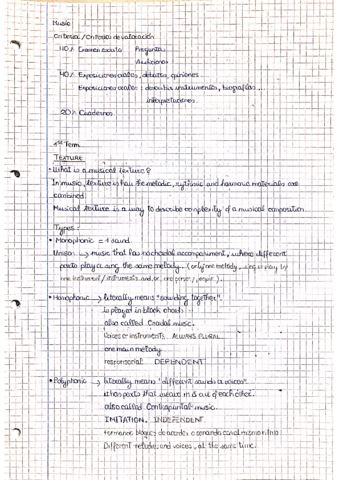 Music
Criteria / Criterios de valoración
40% Examen escrito Preguntas
Audiciones
40% Exposiciones orales, debates, opiniones
Exposiciones orales: describir instrumentos, biografías...
interpretaciones
20% Cuadernos
1st Term
TEXTURE
• What is a musical texture?
In music, texture is how the melodic, rythmic and harmonic materials are
combined
Musical texture is a way to describe complexity of a musical composition
Types:
• Monophonic = 1 sound
Unison → music that has no chordal accompaniment, where different
parts play or sing the same melody. (only one melody, sung or play by
one instrument / instruments and/or, one person / people).
• Homophonic → literally means "sounding together".
is played in block chords
also called Chordal music.
voices or instruments. ALWAYS PLURAL
one main melody
responsorial DEPENDENT
• Polyphonic → literally means "different sounds or voices"
It has parts that weave in & out of each other.
also called Contrapuntal music.
IMITATION, INDEPENDENT
formamos bloques de acordes o sonando con el mismo ritmo
Different melodies and voices, at the same time.